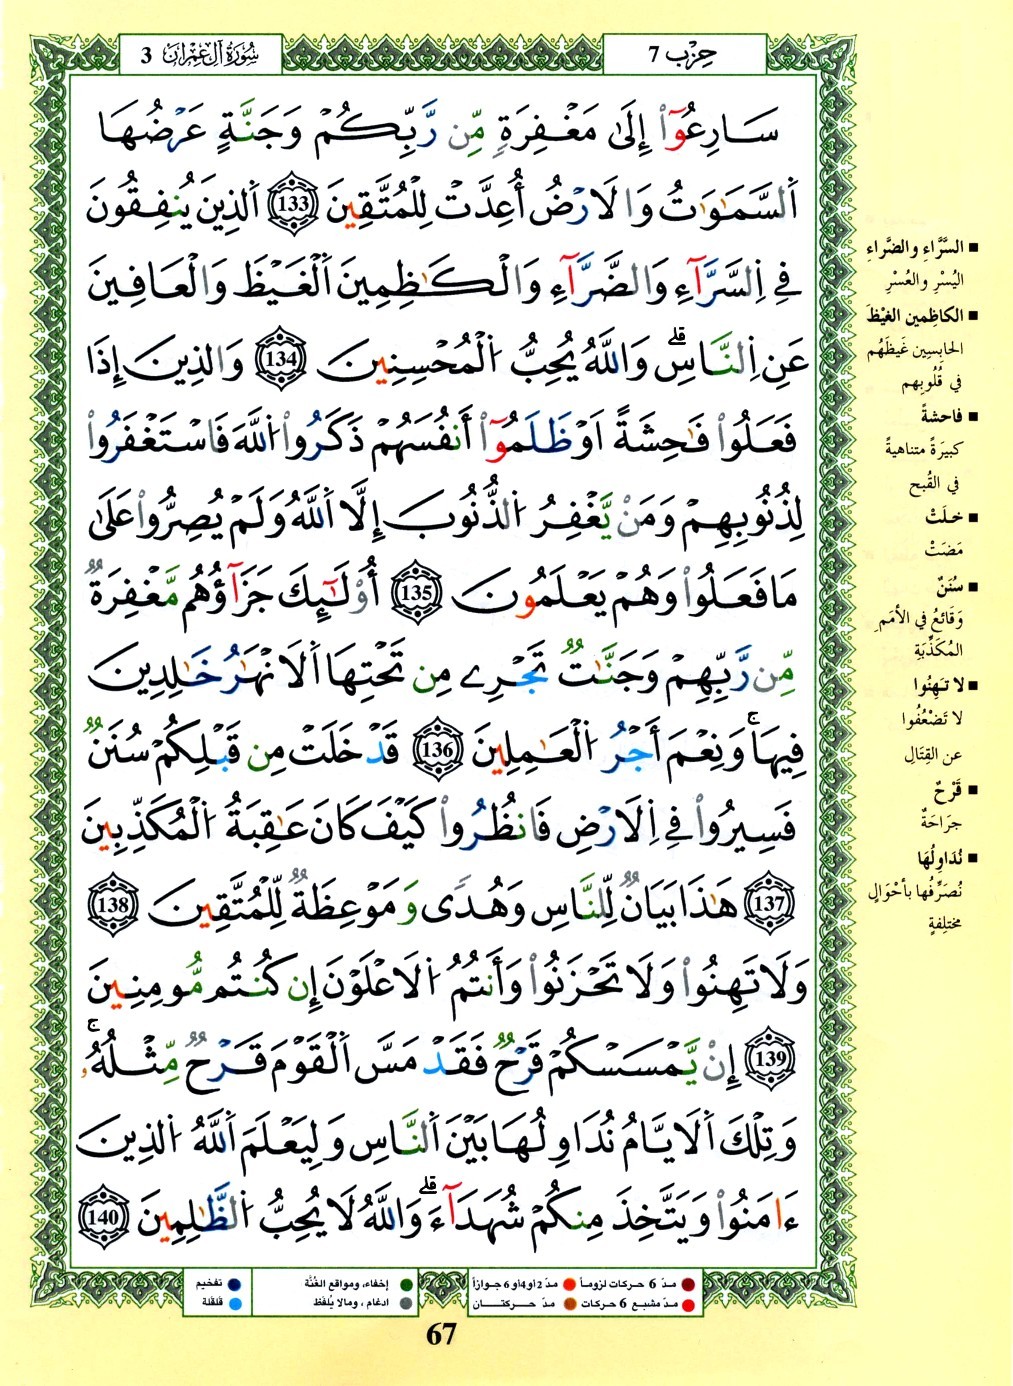 سُورَةُ آلِ عِمْرَانَ 3
حِزْب 7
سَارِعُوٓاْ إِلَىٰ مَغْفِرَةٖ مِّن رَّبِّكُمْ وَجَنَّةٍ عَرْضُهَا
اَ۬لسَّمَٰوَٰتُ وَالَارْضُ أُعِدَّتْ لِلْمُتَّقِينَ 133 اَ۬لذِينَ يُنفِقُونَ
فِي اِ۬لسَّرَّآءِ وَالضَّرَّآءِ وَالْكَٰظِمِينَ اَ۬لْغَيْظَ وَالْعَافِينَ
عَنِ اِ۬لنَّاسِۖ وَاللَّهُ يُحِبُّ اُ۬لْمُحْسِنِينَ 134 وَالذِينَ إِذَا
فَعَلُواْ فَٰحِشَةً اَوْ ظَلَمُوٓاْ أَنفُسَهُمْ ذَكَرُواْ اُ۬للَّهَ فَاسْتَغْفَرُواْ
لِذُنُوبِهِمْ وَمَنْ يَّغْفِرُ اُ۬لذُّنُوبَ إِلَّا اَ۬للَّهُ وَلَمْ يُصِرُّواْ عَلَىٰ
مَا فَعَلُواْ وَهُمْ يَعْلَمُونَ 135 أُوْلَٰٓئِكَ جَزَآؤُهُم مَّغْفِرَةٞ
مِّن رَّبِّهِمْ وَجَنَّٰتٞ تَجْرِے مِن تَحْتِهَا اَ۬لَانْهَٰرُ خَٰلِدِينَ
فِيهَاۚ وَنِعْمَ أَجْرُ اُ۬لْعَٰمِلِينَ 136 قَدْ خَلَتْ مِن قَبْلِكُمْ سُنَنٞ
فَسِيرُواْ فِي اِ۬لَارْضِ فَانظُرُواْ كَيْفَ كَانَ عَٰقِبَةُ اُ۬لْمُكَذِّبِينَ
137 هَٰذَا بَيَانٞ لِّلنَّاسِ وَهُدًى وَمَوْعِظَةٞ لِّلْمُتَّقِينَ 138
وَلَا تَهِنُواْ وَلَا تَحْزَنُواْ وَأَنتُمُ اُ۬لَاعْلَوْنَ إِن كُنتُم مُّومِنِينَ
139 إِنْ يَّمْسَسْكُمْ قَرْحٞ فَقَدْ مَسَّ اَ۬لْقَوْمَ قَرْحٞ مِّثْلُهُۥۚ
وَتِلْكَ اَ۬لَايَّامُ نُدَاوِلُهَا بَيْنَ اَ۬لنَّاسِ وَلِيَعْلَمَ اَ۬للَّهُ اُ۬لذِينَ
ءَامَنُواْ وَيَتَّخِذَ مِنكُمْ شُهَدَآءَۖ وَاللَّهُ لَا يُحِبُّ اُ۬لظَّٰلِمِينَ 140
■ السَّرَّاءِ والضَّراءِ
اليُسْرِ والعُسْرِ
■ الكاظِمين الغيْظَ
الحابِسِين غَيظَهُم
في قُلُوبِهم
■ فاحشةً
كبيَرَةً متناهيةً
في القُبح
■ خلَتْ
مَضَتْ
■ سُنَنٌ
وَقَائعُ في الأمَمِ
المُكَذِّبَةِ
■ لا تهِنُوا
لا تَضْعُفُوا
عن القِتَالِ
■ قَرْحٌ
جرَاحَةٌ
■ نُدَاوِلُها
نُصَرِّفُها بأحْوَالٍ
مختلِفةٍ
مدّ 6 حركات لزوماً مدّ 2أو4أو 6 جوازاً
مدّ مشبع 6 حركات مدّ حركتــان
إخفاء، ومواقع الغُنَّة
ادغام ، ومالا يُلفَظ
تفخيم
قلقلة
67